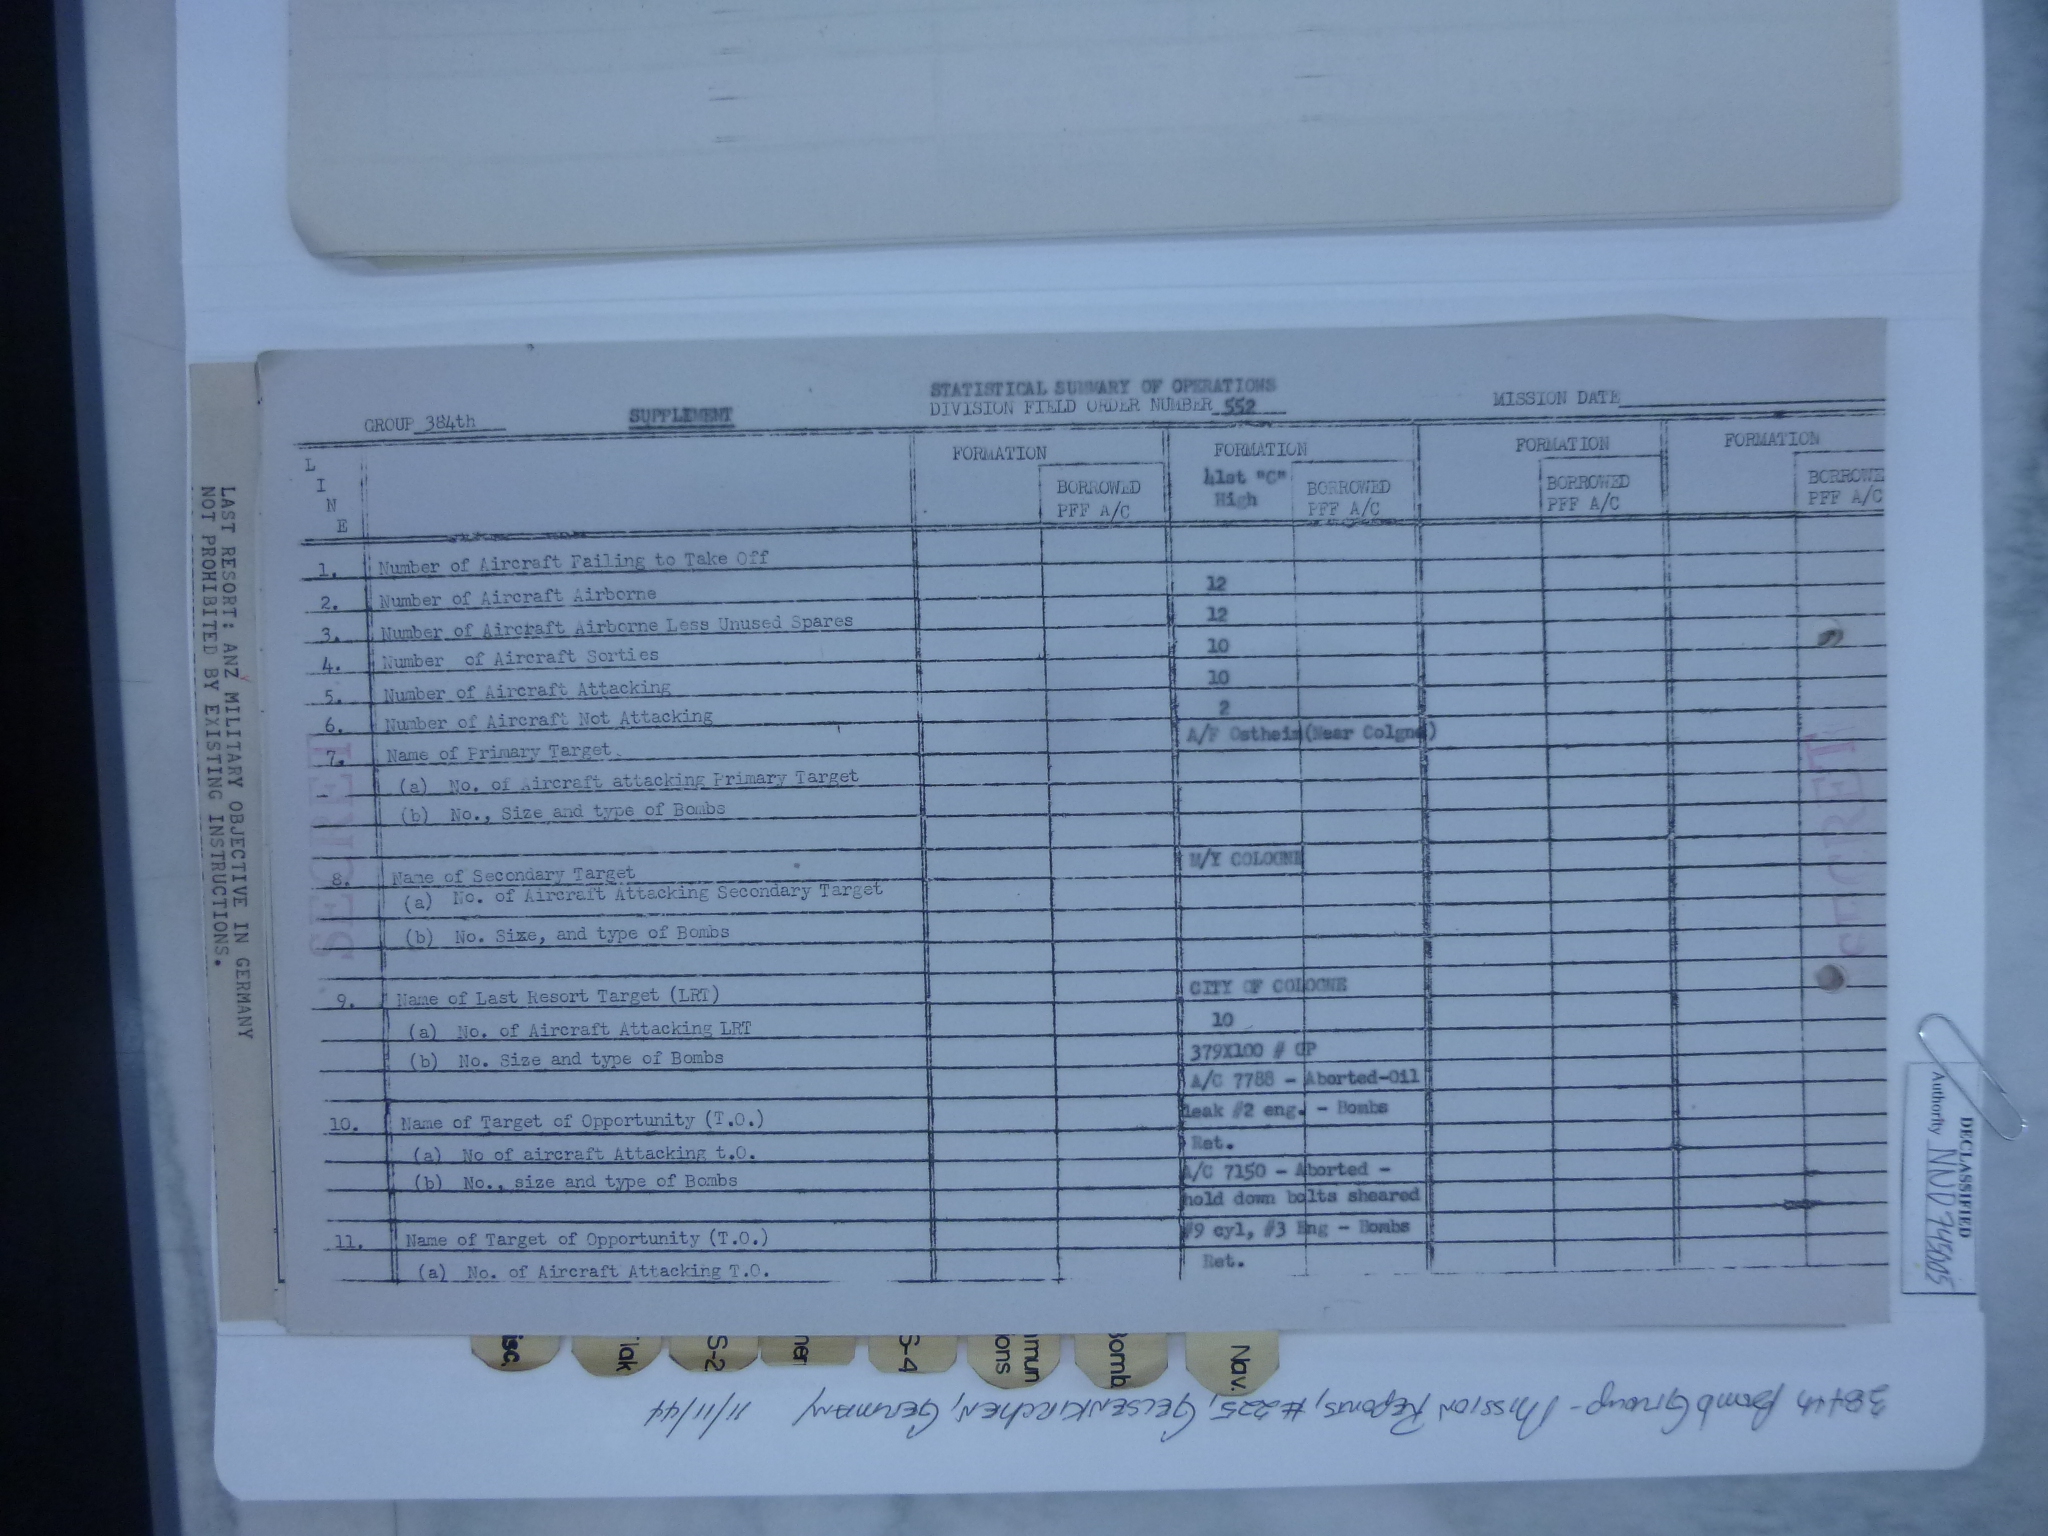 STATISTICAL SUMMARY OF OPERATIONS
GROUP 384th SUPPLEMENT DIVISION FIELD ORDER NUMBER 552 MISSION DATE
LINE
FORMATION FORMATION FORMATION FORMATION
BORROWED PFF A/C 41st "C" High BORROWED PFF A/C BORROWED PFF A/C BORROWE PFF A/C
1. Number of Aircraft Failing to Take Off
2. Number of Aircraft Airborne 12
3. Number of Aircraft Airborne Less Unused Spares 12
4. Number of Aircraft Sorties 10
5. Number of Aircraft Attacking 10
6. Number of Aircraft Not Attacking 2
7. Name of Primary Target A/F Ostheim (Near Colgne)
(a) No. of Aircraft attacking Primary Target
(b) No., Size and type of Bombs
8. Name of Secondary Target M/Y COLOGNE
(a) No. of Aircraft Attacking Secondary Target
(b) No. Size, and type of Bombs
9. Name of Last Resort Target (LRT) CITY OF COLOGNE
(a) No. of Aircraft Attacking LRT 10
(b) No. Size and type of Bombs 379X100 # GP
A/C 7788 - Aborted-Oil
10. Name of Target of Opportunity (T.O.) leak #2 eng. - Bombs
(a) No of aircraft Attacking t.O. Ret.
(b) No., size and type of Bombs A/C 7150 - Aborted -
hold down bolts sheared
11. Name of Target of Opportunity (T.O.) #9 cyl, #3 Eng - Bombs
(a) No. of Aircraft Attacking T.O. Ret.
SECRET
SECRET
LAST RESORT: ANY MILITARY OBJECTIVE IN GERMANY
NOT PROHIBITED BY EXISTING INSTRUCTIONS.
DECLASSIFIED
Authority NND 745005
isc.
lak
S-2
ner
S-4
mmun
ions
Bomb
Nav.
384th Bomb Group - Mission Reports, #225, Gelsenkirchen, Germany 11/11/44